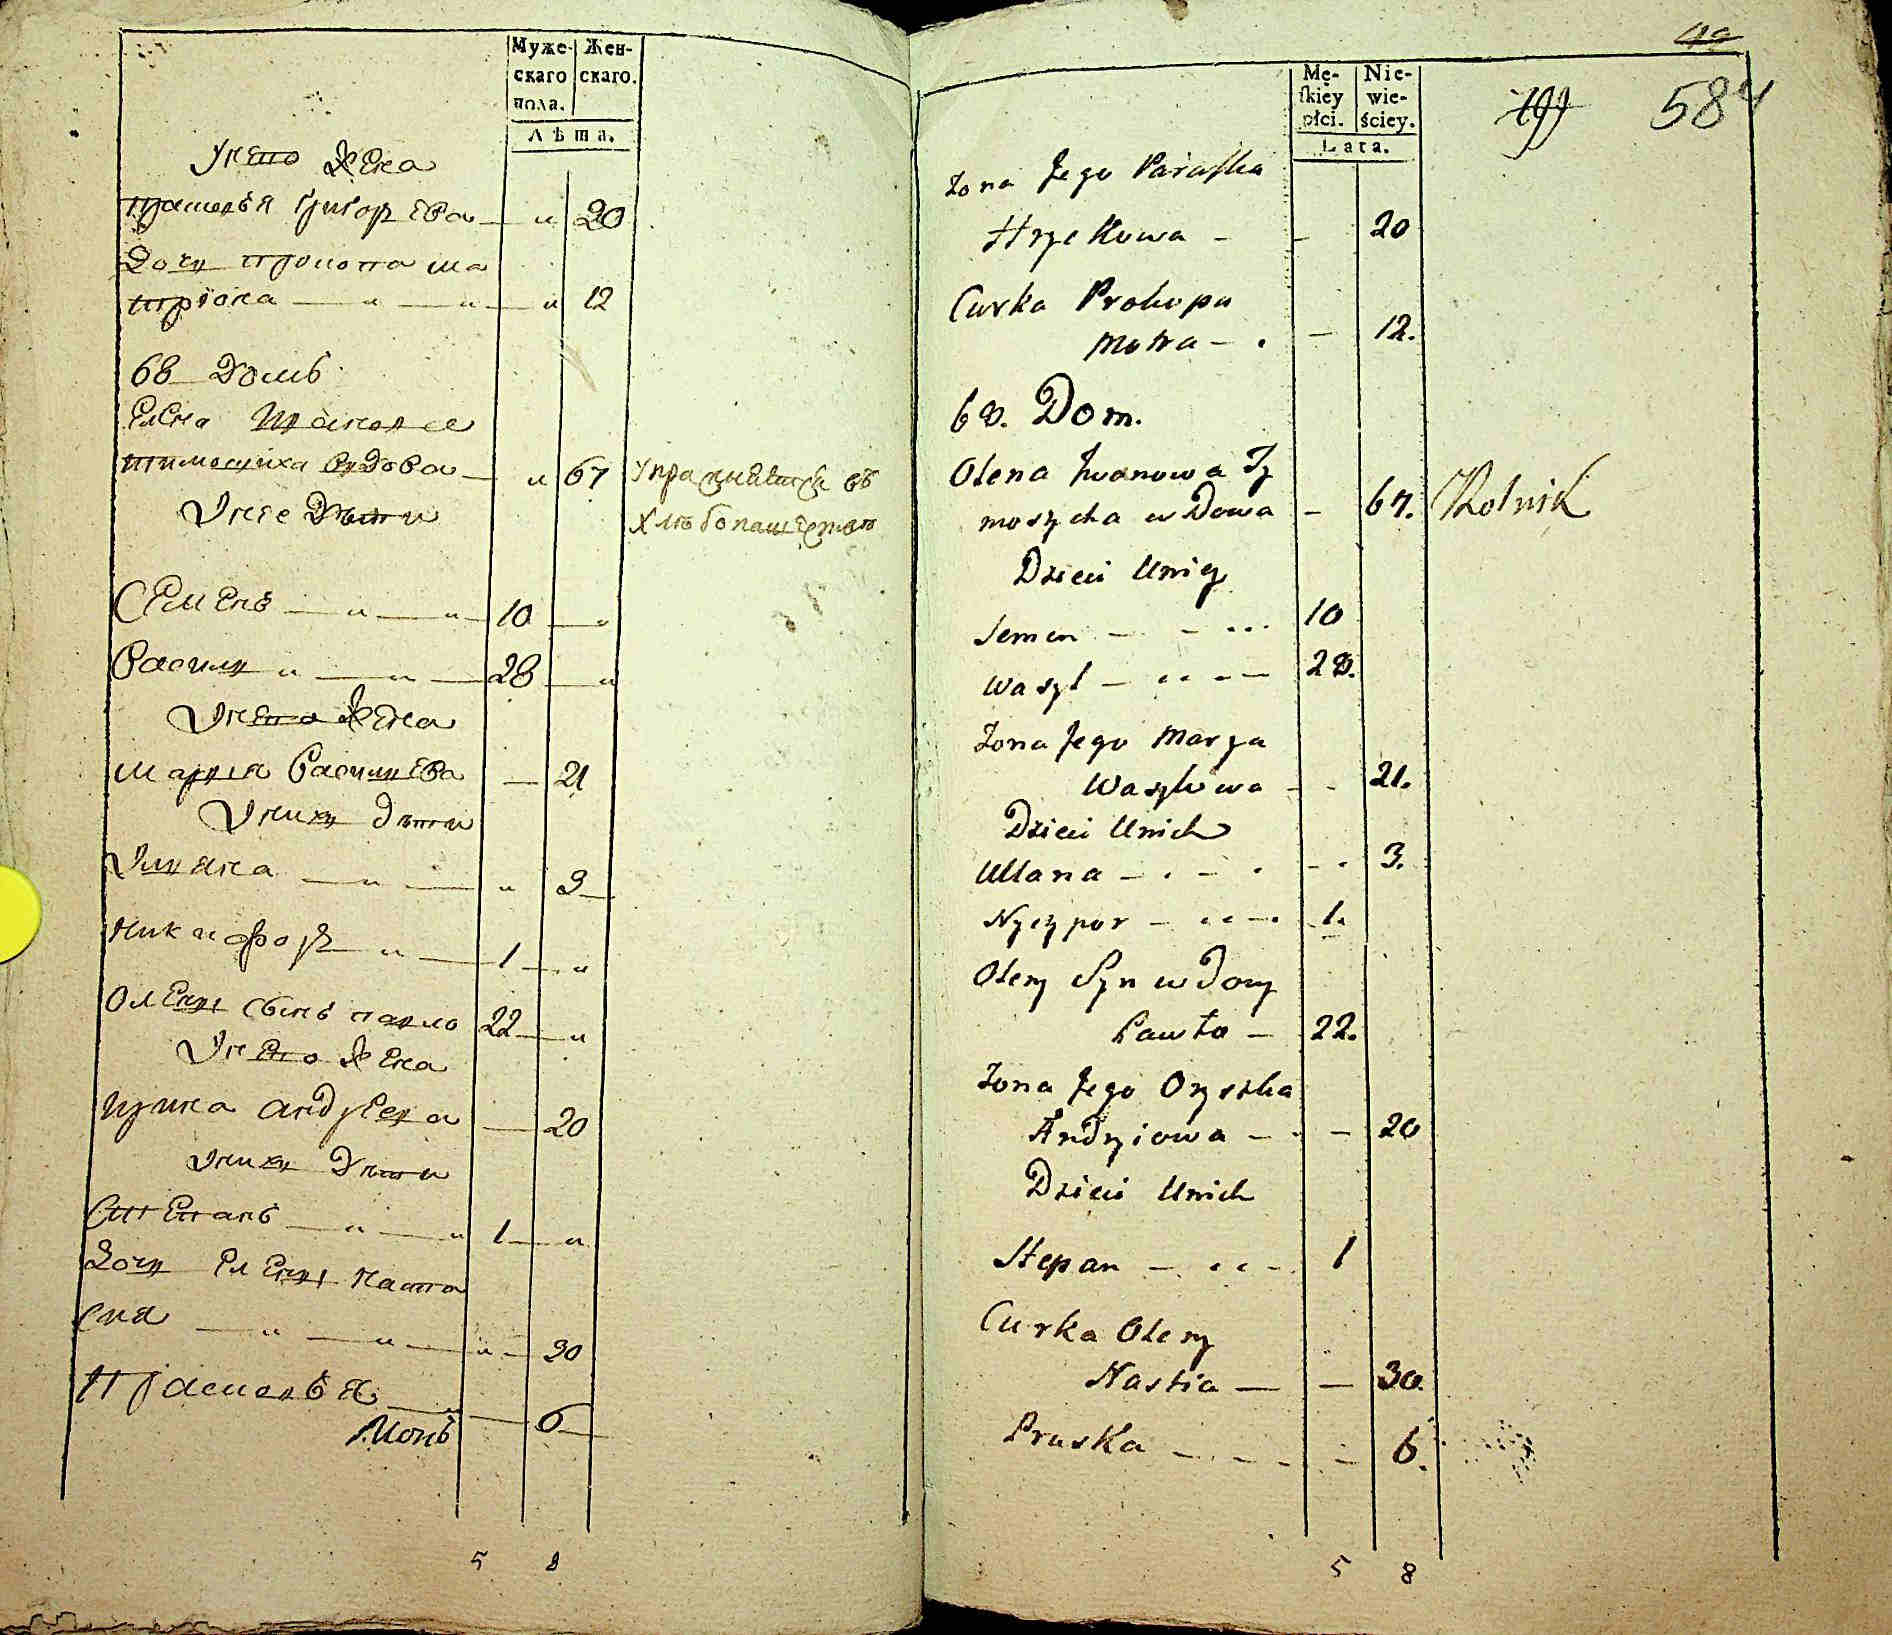 Муже- Жен-
скаго скаго.
пола.
Лѣта.
У него Жена
Прасковья Григорьева — " 20
Дочь Прокопа Ма
тріона — " — " — " 12
68 Домъ
Елена
Тимощиха Вдова — " 67 Упражняется въ
У нее Дѣти Хлѣбопашествѣ
Семенъ — " — " — 10 — "
Василь " — " — 28 — "
У него Жена
Марья Василева — 21
У ихъ дѣти
Уляна — " — " 3 —
Никифоръ — " — 1 — "
Олены сынъ Павло 22 — "
У него Жена
Андреева — 20
У ихъ Дѣти
Степанъ — " — " 1 — "
Дочь Елены Наста
сия — " — " — " — 30
Прасковья — " — 6 —
5 8
Mę- Nie-
skiey wie-
płci. ściey.
Lata.
584
Zona Jego Paraska
Hryckowa - - 20
Curka Prokopa
Motra - . - 12.
68. Dom.
Olena Iwanowa Ty
moszycha wDowa - 67. Rolnik
Dzieci Uniey
Semen - - ... 10
Wasyl - .. - - 28.
Zona Jego Marya
Wasylowa - - 21.
Dzieci Unich
Ullana - . - . - . 3.
Nyczypor - .. - . 1.
Oleny Syn wDowy
Pawło - 22.
Zona Jego Oryszka
Andryiowa - . - 20
Dzieci Unich
Stepan - .. - 1
Curka Oleny
Nastia - - 30.
Pruska - . - - . - 6.
5 8